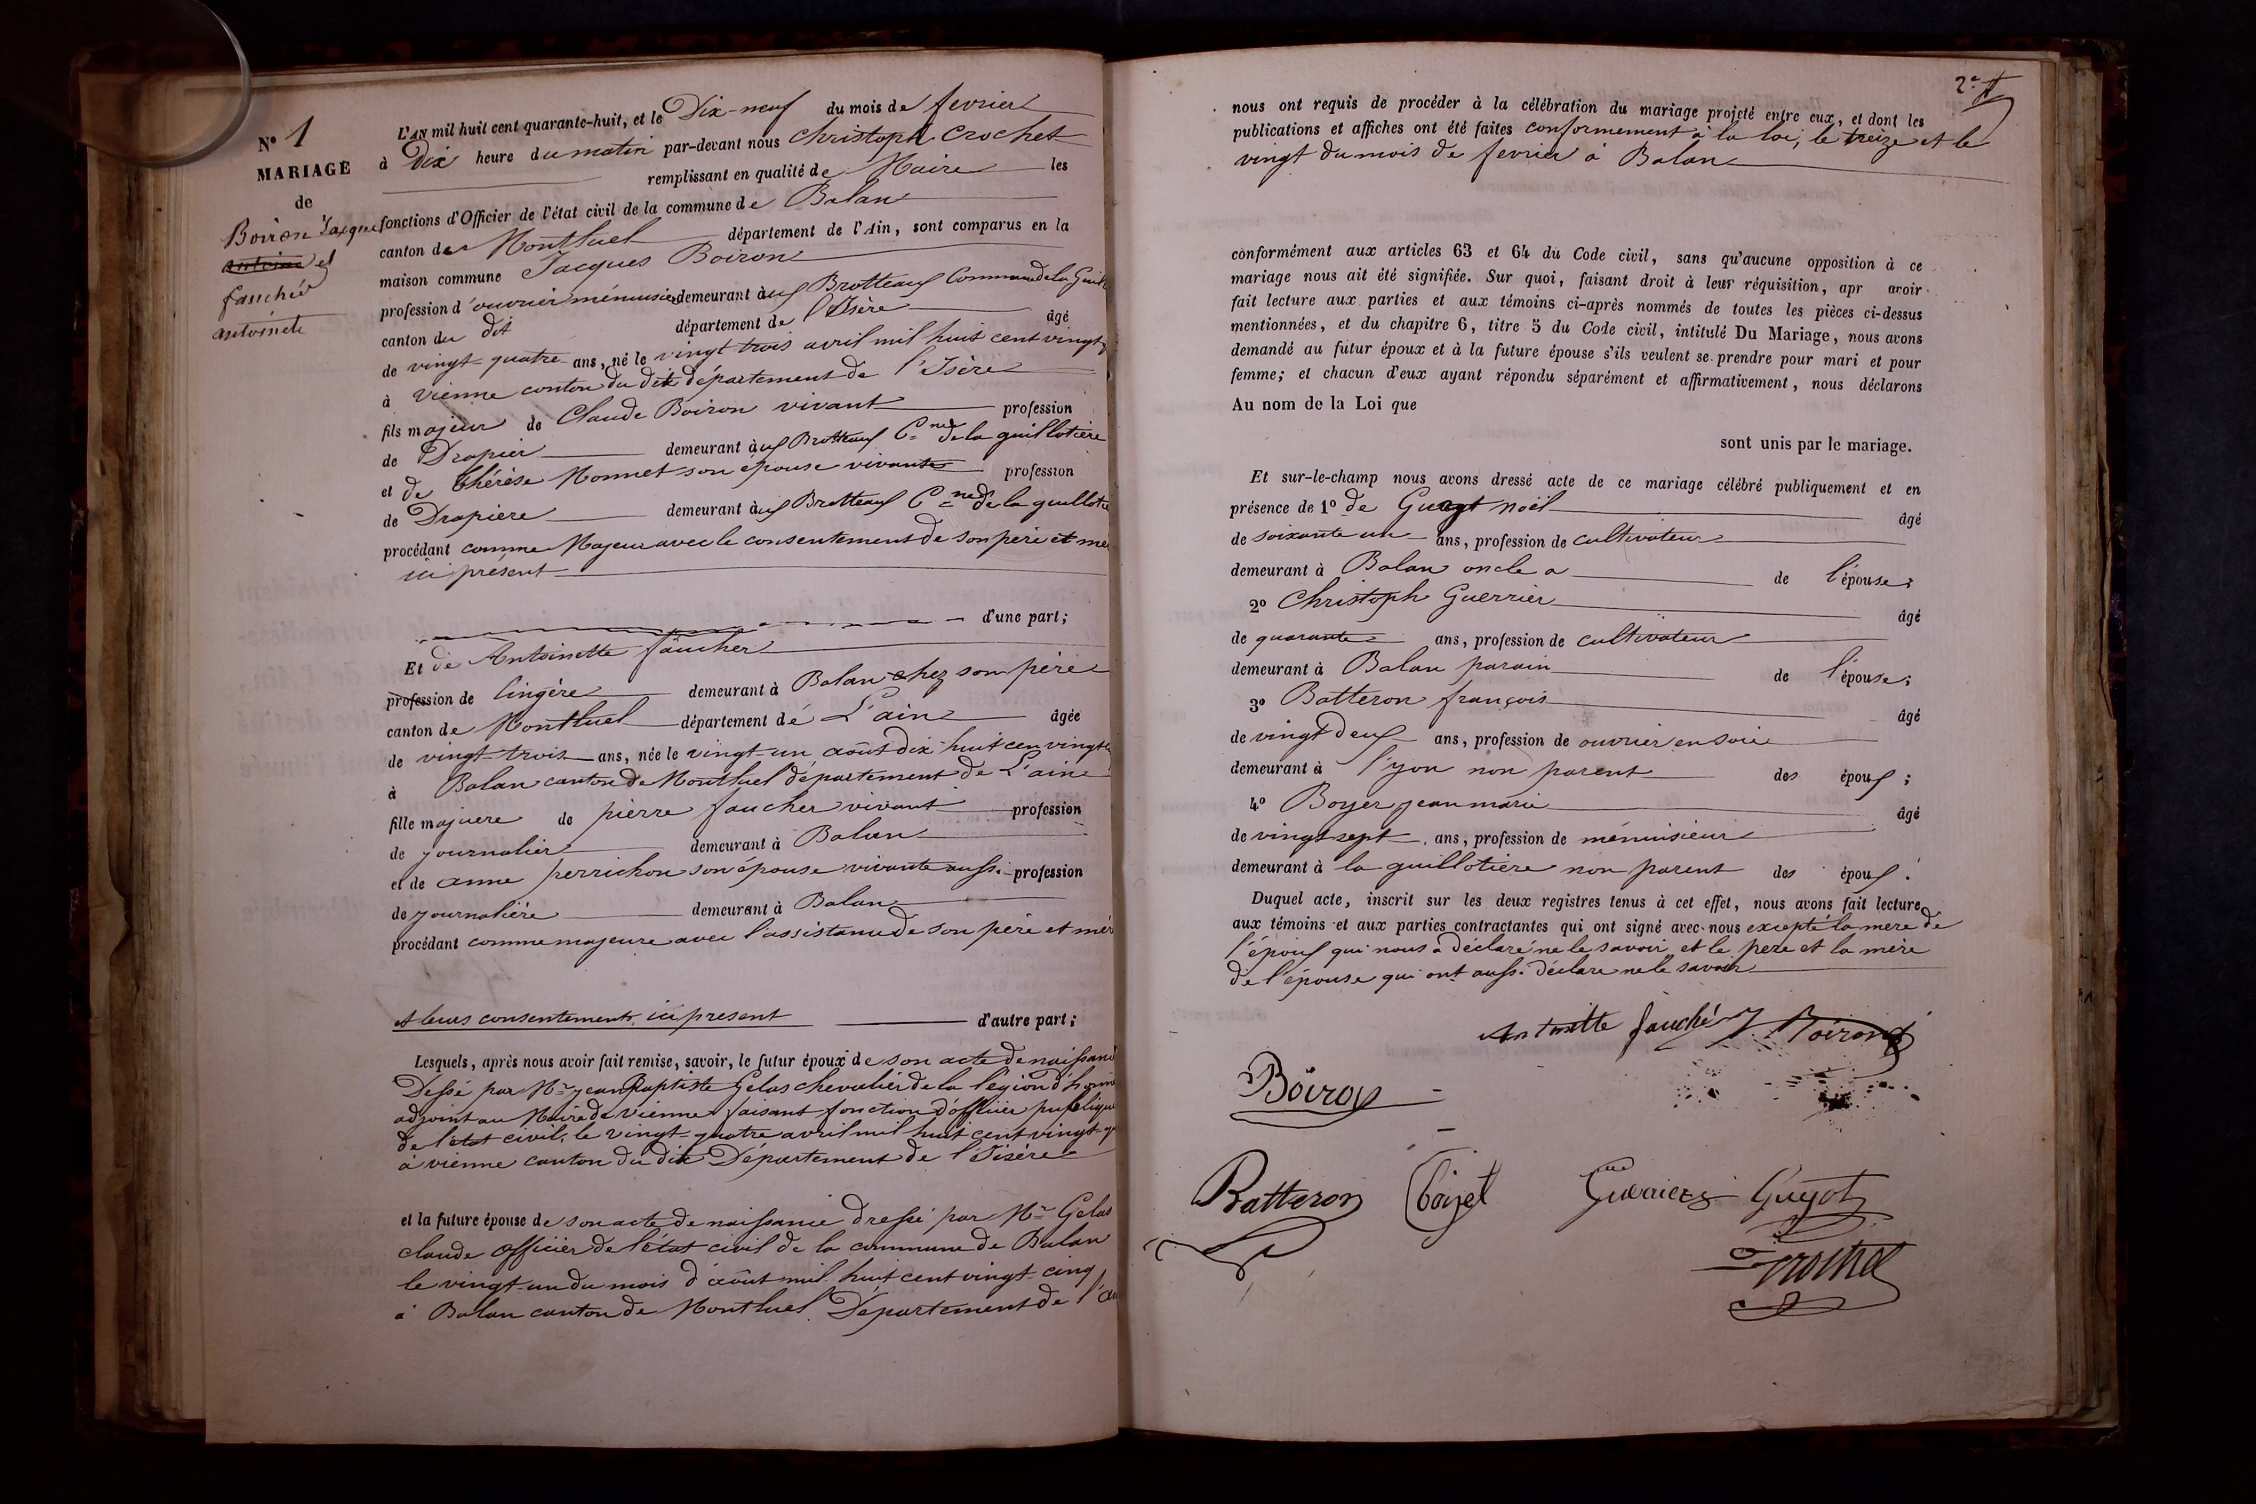 N° 1
MARIAGE
de
Boiron Jacques
antoine et
fauché
antoinete
L'AN mil huit cent quarante-huit, et le Dix-neuf du mois de fevrier
à Dix heure du matin par-devant nous Christoph Crochet
remplissant en qualité de Maire les
fonctions d'Officier de l'état civil de la commune de Balan
canton de Montluel département de l'Ain, sont comparus en la
maison commune Jacques Boiron
profession d'ouvrier ménuisier demeurant aux Brotteaux Commune de la Guill
canton du dit département de l'Isère âgé
de vingt-quatre ans, né le vingt trois avril mil huit cent vingt
à Vienne conton du dit département de l'Isère
fils majeur de Claude Boiron vivant profession
de Drapier demeurant aux Brotteaux Cne de la guillotière
et de thérèse Monnet son épouse vivante profession
de Drapière demeurant aux Brotteaux Cne de la guillotie
procédant comme Majeur avec le consentement de son père et mè
ici présent
d'une part;
Et de Antoinette faucher
profession de lingère demeurant à Balan chez son père
canton de Montluel département de L'ain âgée
de vingt-trois ans, née le vingt-un août dix-huit cen vingt
à Balan canton de Montluel département de L'ain
fille majuere de pierre faucher vivant profession
de journalier demeurant à Balan
et de anne perrichon son épouse vivante aussi profession
de journalière demeurant à Balan
procédant comme majeure avec l'assistance de son père et mèr
et leurs consentements ici present d'autre part;
Lesquels, après nous avoir fait remise, savoir, le futur époux de son acte de naissan
Dessé par Mr jean Baptiste Gelas chevalier de la légion d'honn
adjoint au Maire de Vienne faisant fonction d'officier publique
de l'état civil, le vingt-quatre avril mil huit cent vingt-q
à vienne canton du dit Département de l'Isère
et la future épouse de son acte de naissance dressé par Mr Gelas
claude officier de l'état civil de la commune de Balan
le vingt-un du mois d'août mil huit cent vingt-cinq
à Balan canton de Montluel Département de l'ai
2e
nous ont requis de procéder à la célébration du mariage projeté entre eux, et dont les
publications et affiches ont été faites conformement à la loi, le treize et le
vingt du mois de fevrier à Balan
conformément aux articles 63 et 64 du Code civil, sans qu'aucune opposition à ce
mariage nous ait été signifiée. Sur quoi, faisant droit à leur réquisition, apr avoir
fait lecture aux parties et aux témoins ci-après nommés de toutes les pièces ci-dessus
mentionnées, et du chapitre 6, titre 5 du Code civil, intitulé Du Mariage, nous avons
demandé au futur époux et à la future épouse s'ils veulent se prendre pour mari et pour
femme; et chacun d'eux ayant répondu séparément et affirmativement, nous déclarons
Au nom de la Loi que
sont unis par le mariage.
Et sur-le-champ nous avons dressé acte de ce mariage célébré publiquement et en
présence de 1° de Guyot noël âgé
de soixante un ans, profession de cultivateur
demeurant à Balan oncle a de l'épouse;
2° Christoph Guerrier âgé
de quarante ans, profession de cultivateur
demeurant à Balan parain de l'épouse;
3° Batteron françois âgé
de vingt Deux ans, profession de ouvrier en soie
demeurant à l'yon non parent des époux;
4° Boyer jean marie âgé
de vingt sept ans, profession de ménuisieur
demeurant à la guillotière non parent des époux.
Duquel acte, inscrit sur les deux registres tenus à cet effet, nous avons fait lecture
aux témoins et aux parties contractantes qui ont signé avec nous excepté la mere de
l'époux qui nous a déclaré ne le savoir, et le pere et la mère
de l'épouse qui ont aussi déclare ne le savoir
Antoinette fauché J Boiron
Boiron
Batteron Boyet Guerrier Guyot
Crochet